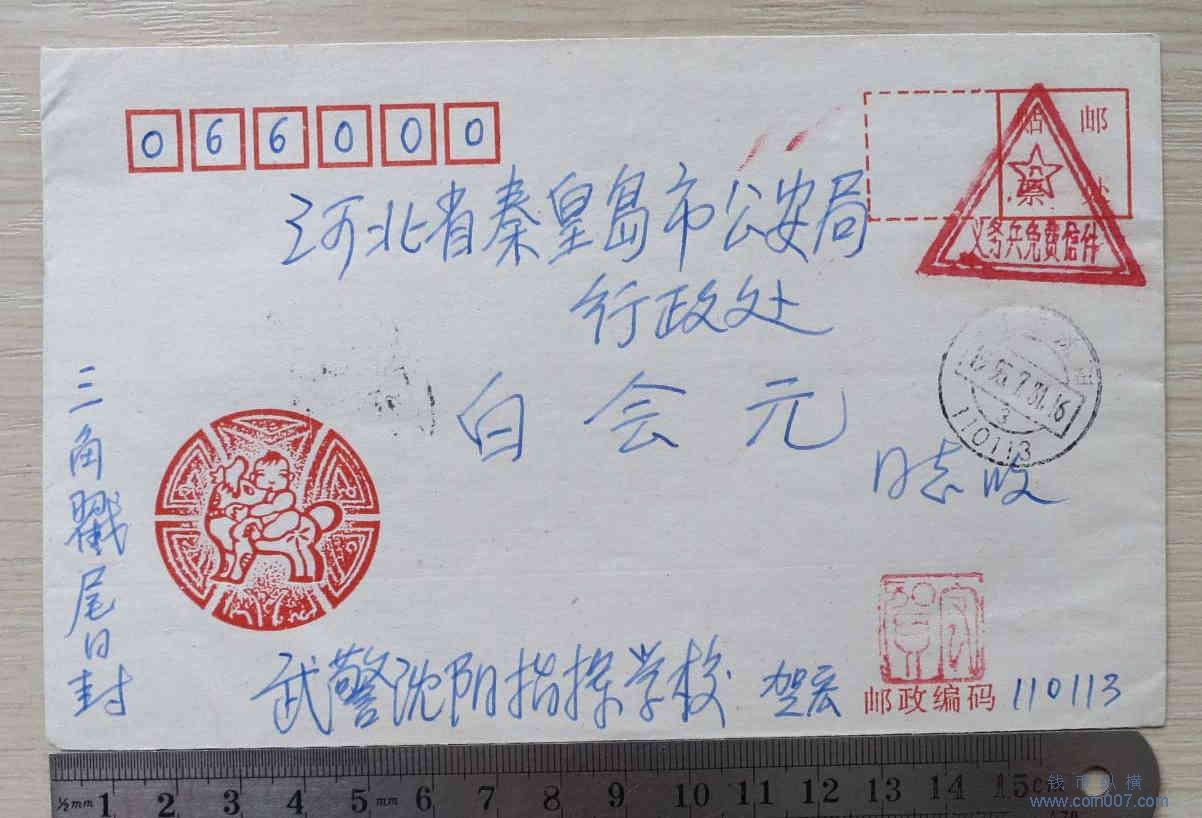 066000
贴 邮
票
义务兵免费信件
河北省秦皇岛市公安局
行政处
白会元
同志收
95.7.31.16
3
110113
三角戳尾日封
武警沈阳指挥学校 贺宏
邮政编码 110113
½mm 1 2 3 4 5 mm 6 7 8 9 10 11 12 13 14 15cm
钱币纵横
www.com007.com